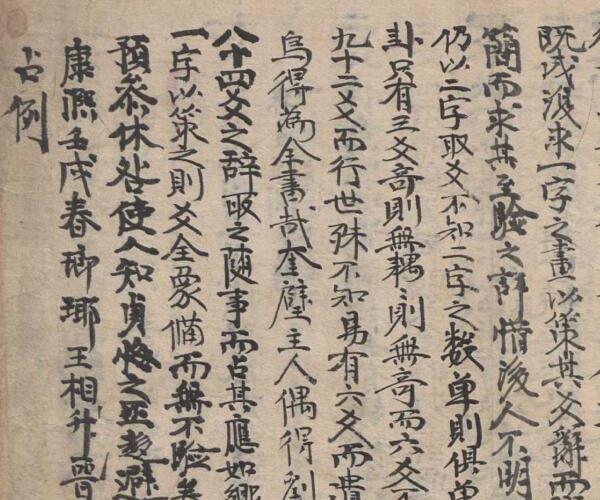 既成復求一字之畫以策其爻辭而
簡而求其至驗之辞惜後人不明
仍以二字取爻不知二字之数单則俱单
卦只有三爻奇則無耦耦則無奇而六爻不
九十二爻而行世殊不知易有六爻而費
烏得為全書哉奎壁主人偶得劉
八十四爻之辞取之随事而占其應如響
一字以策之則爻全象備而無不验矣
預叅休咎使人知貞悔之 趨避
康熙壬戌春瑯琊王相升晋
占例